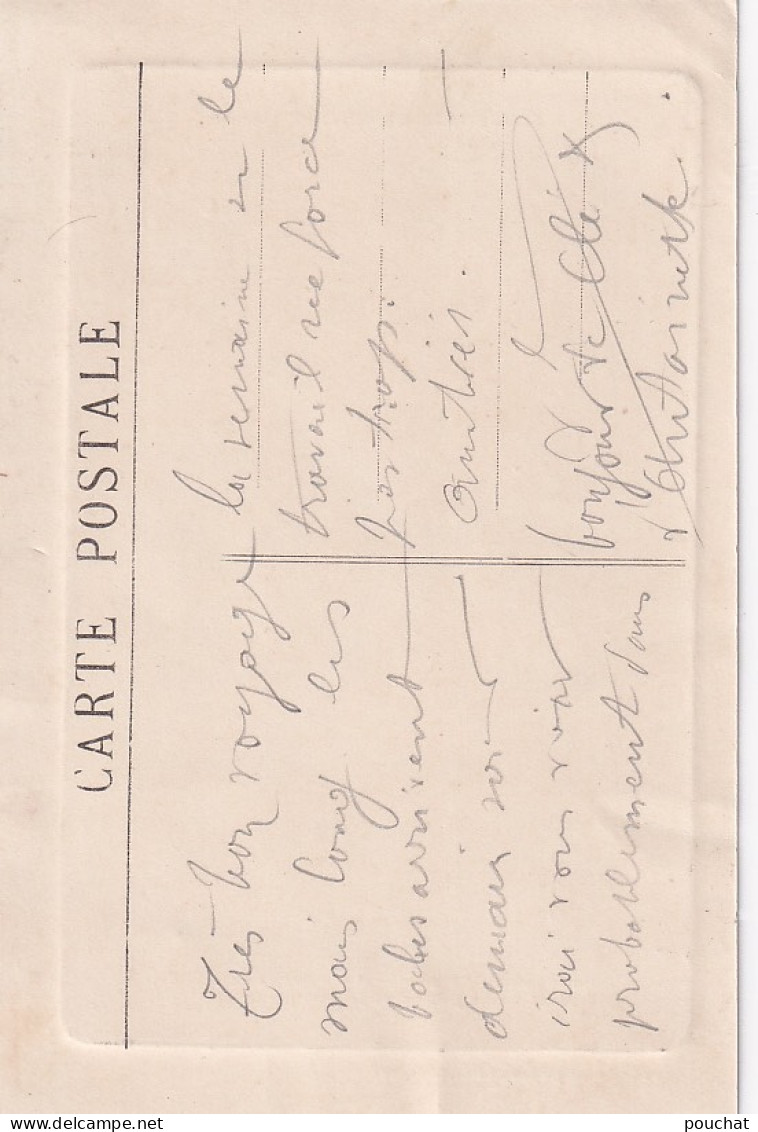 CARTE POSTALE
Très bon voyage
mais long les
bébés arrivent
demain soir
irai vous voir
probablement dans
la semaine si le
travail ne force
pas trop.
Amitiés.
bonjour de Cléx
Antoinette.
pouchat